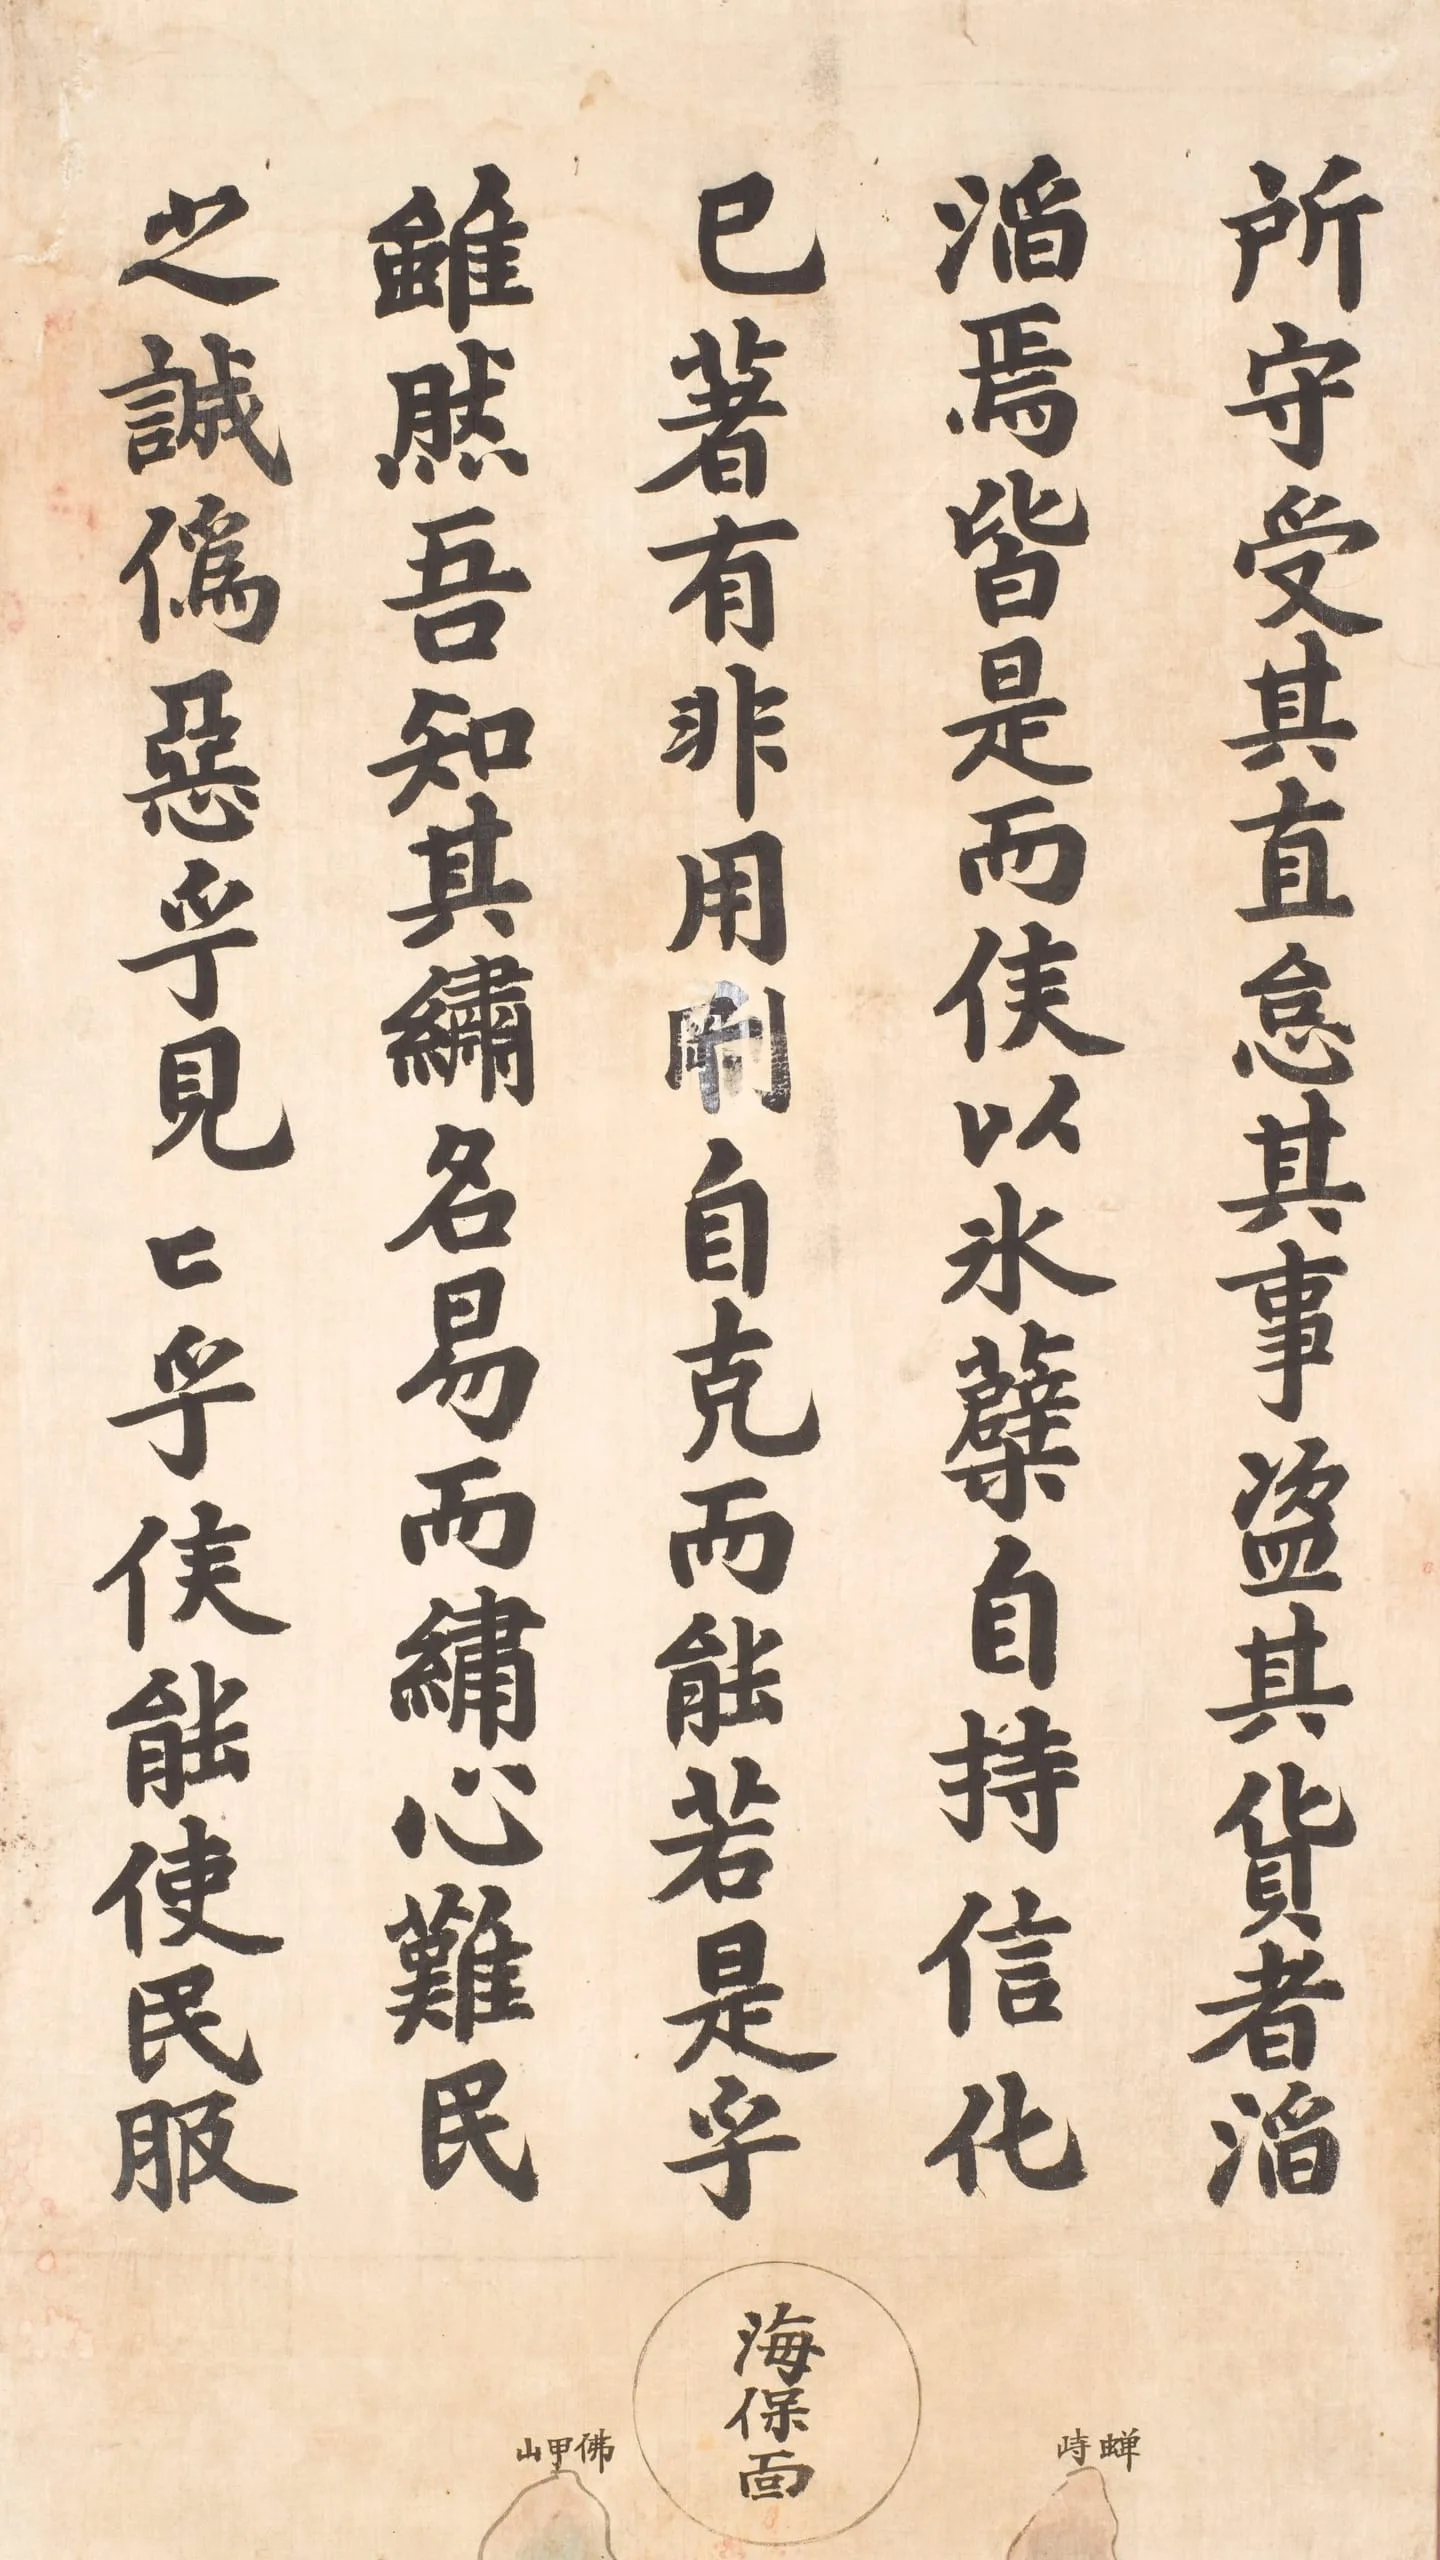 所守受其直怠其事盗其貨者滔
滔焉皆是而侯以氷蘗自持信化
已著有非用剛自克而能若是乎
雖然吾知其繡名易而繡心難民
之誠僞惡乎見〻乎侯能使民服
蟬峙
海保面
佛甲山